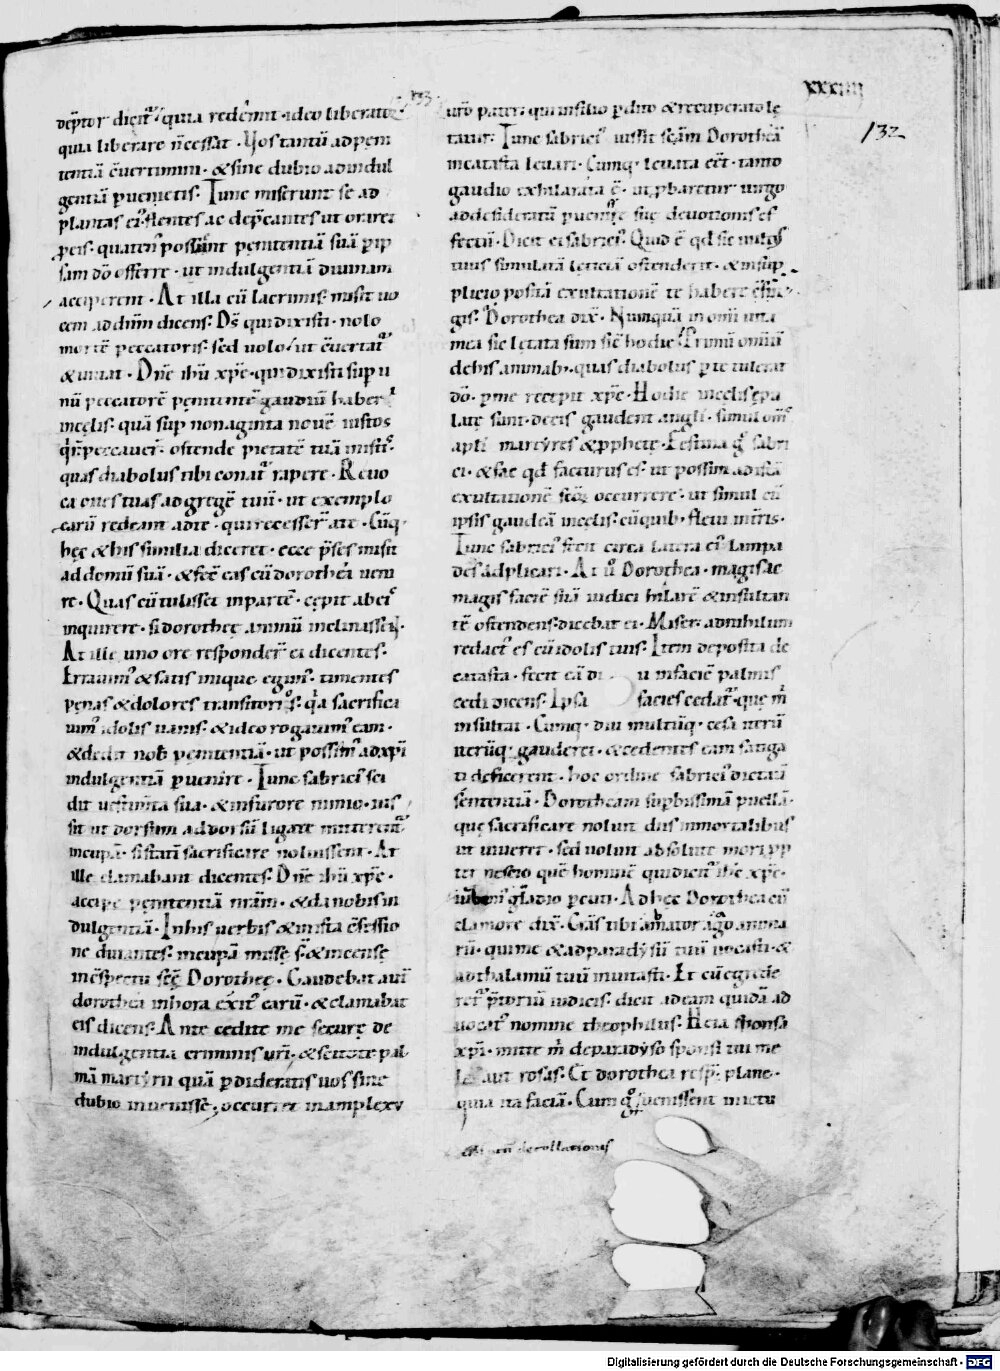 xxxiiii
133
132
dēptor dicit᷑ quia redemit · ideo liberator
quia liberare n̄ cessat · Vos tantū ad peni
tentiā c̄uertimini · & sine dubio ad indul
gentiā puenietis · Tunc miserunt se ad
plantas ei᷒ flentes ac dep̄cantes ut oraret
p eis · quaten᷒ possint penitentiā suā p ip
sam dō offerre · ut indulgentiā diuinam
acciperent · At illa cū lacrimis · misit uo
cem ad dn̄m dicens · Ds̄ qui dixisti · nolo
mortē peccatoris · sed uolo ut c̄uertat᷑
& uiuat · Dn̄e ihū xp̄e · qui dixisti sup u
nū peccatorē penitentē gaudiū haberi
in celis · quā sup nonaginta nouē iustos
qui n̄ peccauer̄ · ostende pietatē tuā in istis
quas diabolus tibi conat᷑ rapere · Reuo
ca oues tuas ad gregē tuū · ut exemplo
earū redeant ad te · qui recesser̄ a te · Cūq;
hęc & his similia diceret · ecce p̄ses misit
ad domū suā · & fecit eas cū dorothea ueni
re · Quas cū tulisset in partē · cępit ab eis
inquirere · si dorotheę animū inclinassent ·
At ille uno ore responder̄ ei dicentes ·
Errauim᷒ & satis inique egim᷒ · timentes
pęnas & dolores transitorios · q̇a sacrifica
uim᷒ idolis uanis · & ideo rogauim᷒ eam ·
& dedit nob̄ penitentiā · ut possim᷒ ad xp̄i
indulgentiā puenire · Tunc sabrici᷒ sci
dit uestim̄ta sua · & in furore nimio · ius
sit ut dorsum ad dorsū ligate mitterent᷑
in cupā · si statī sacrificare noluissent · At
ille clamabant dicentes · Dn̄e ihū xp̄e ·
accipe penitentiā nr̄am · & da nobis in
dulgentiā · In his uerbis & in ista c̄fessio
ne durantes · in cupā missę s̄ · & incensę
in c̄spectu scę̄ Dorotheę · Gaudebat autē
dorothea in hora exit᷒ earū · & clamabat
eis dicens · Antecedite me securę de
indulgentia criminis ur̄i · & scitote pal
mā martyrii quā pdideratis uos sine
dubio inuenisse · occurret in amplexu
uro pater · qui in filio pdito & recuperato lę
tatur · Tunc sabrici᷒ iussit scām Dorotheā
in catasta leuari · Cumq; leuata eēt · tanto
gaudio exhilarata ē · ut pbaretur uirgo
ad desideratū puenisse suę deuotionis ef
fectū · Dicit ei sabrici᷒ · Quid ē qd̄ sic uult᷒
tuus simulatā leticiā ostenderit · & in sup
plicio posita exultationē te habere c̄fin
gis · Dorothea dix̄ · Numquā in omī uita
mea sic lętata sum sic hodie · Primū omniū
de his animab; quas diabolus p te tulerat
dō · p me recepit xp̄e · Hodie in celis epu
latę sunt · de eis gaudent angli · simul om̄s
apli martyres & pphetę · Festina g̊ sabri
ci · & fac qd̄ facturus es · ut possim ad istā
exultationē scōr̄ occurrere · ut simul cū
ipsis gaudeā in celis · cū quib; fleui in t̄ris ·
Tunc sabrici᷒ fecit circa latera ei᷒ lampa
des adplicari · At u̇ Dorothea · magis ac
magis faciē suā iudici hilarē & insultan
tē ostendens · dicebat ei · Miser · ad nihilum
redact᷒ es cū idolis tuis · Item deposita de
catasta · fecit eā di u in faciē palmis
cedi dicens · Ipsa facies cedat᷑ · quę m̄
insultat · Cumq; diu multūq; cesa iterū
iterūq; gauderet · & cedentes eam fatiga
ti deficerent · hoc ordine sabrici᷒ dictauit
sententiā · Dorotheam supbissimā puellā ·
quę sacrificare noluit diis immortalibus
ut uiueret · sed uoluit absolute mori pp
ter nescio quē hominē qui dicit᷑ ihc xp̄c ·
iubem᷒ gladio peuti · Ad hęc Dorothea cū
clamore dix̄ · Grās tibi amator ago anima
rū · qui me & ad paradysū tuū uocasti · &
ad thalamū tuū inuitasti · Et cū egrede
ret᷑ p̄toriū iudicis · dicit ad eam quidā ad
uocat᷒ nomine theophilus · Heia sponsa
xp̄i · mitte m̄ de paradyso sponsi tui me
la aut rosas · Et dorothea resp̄ · plane ·
quia ita faciā · Cum g̊ puenissent in ictu
decollationis
Digitalisierung gefördert durch die Deutsche Forschungsgemeinschaft - DFG